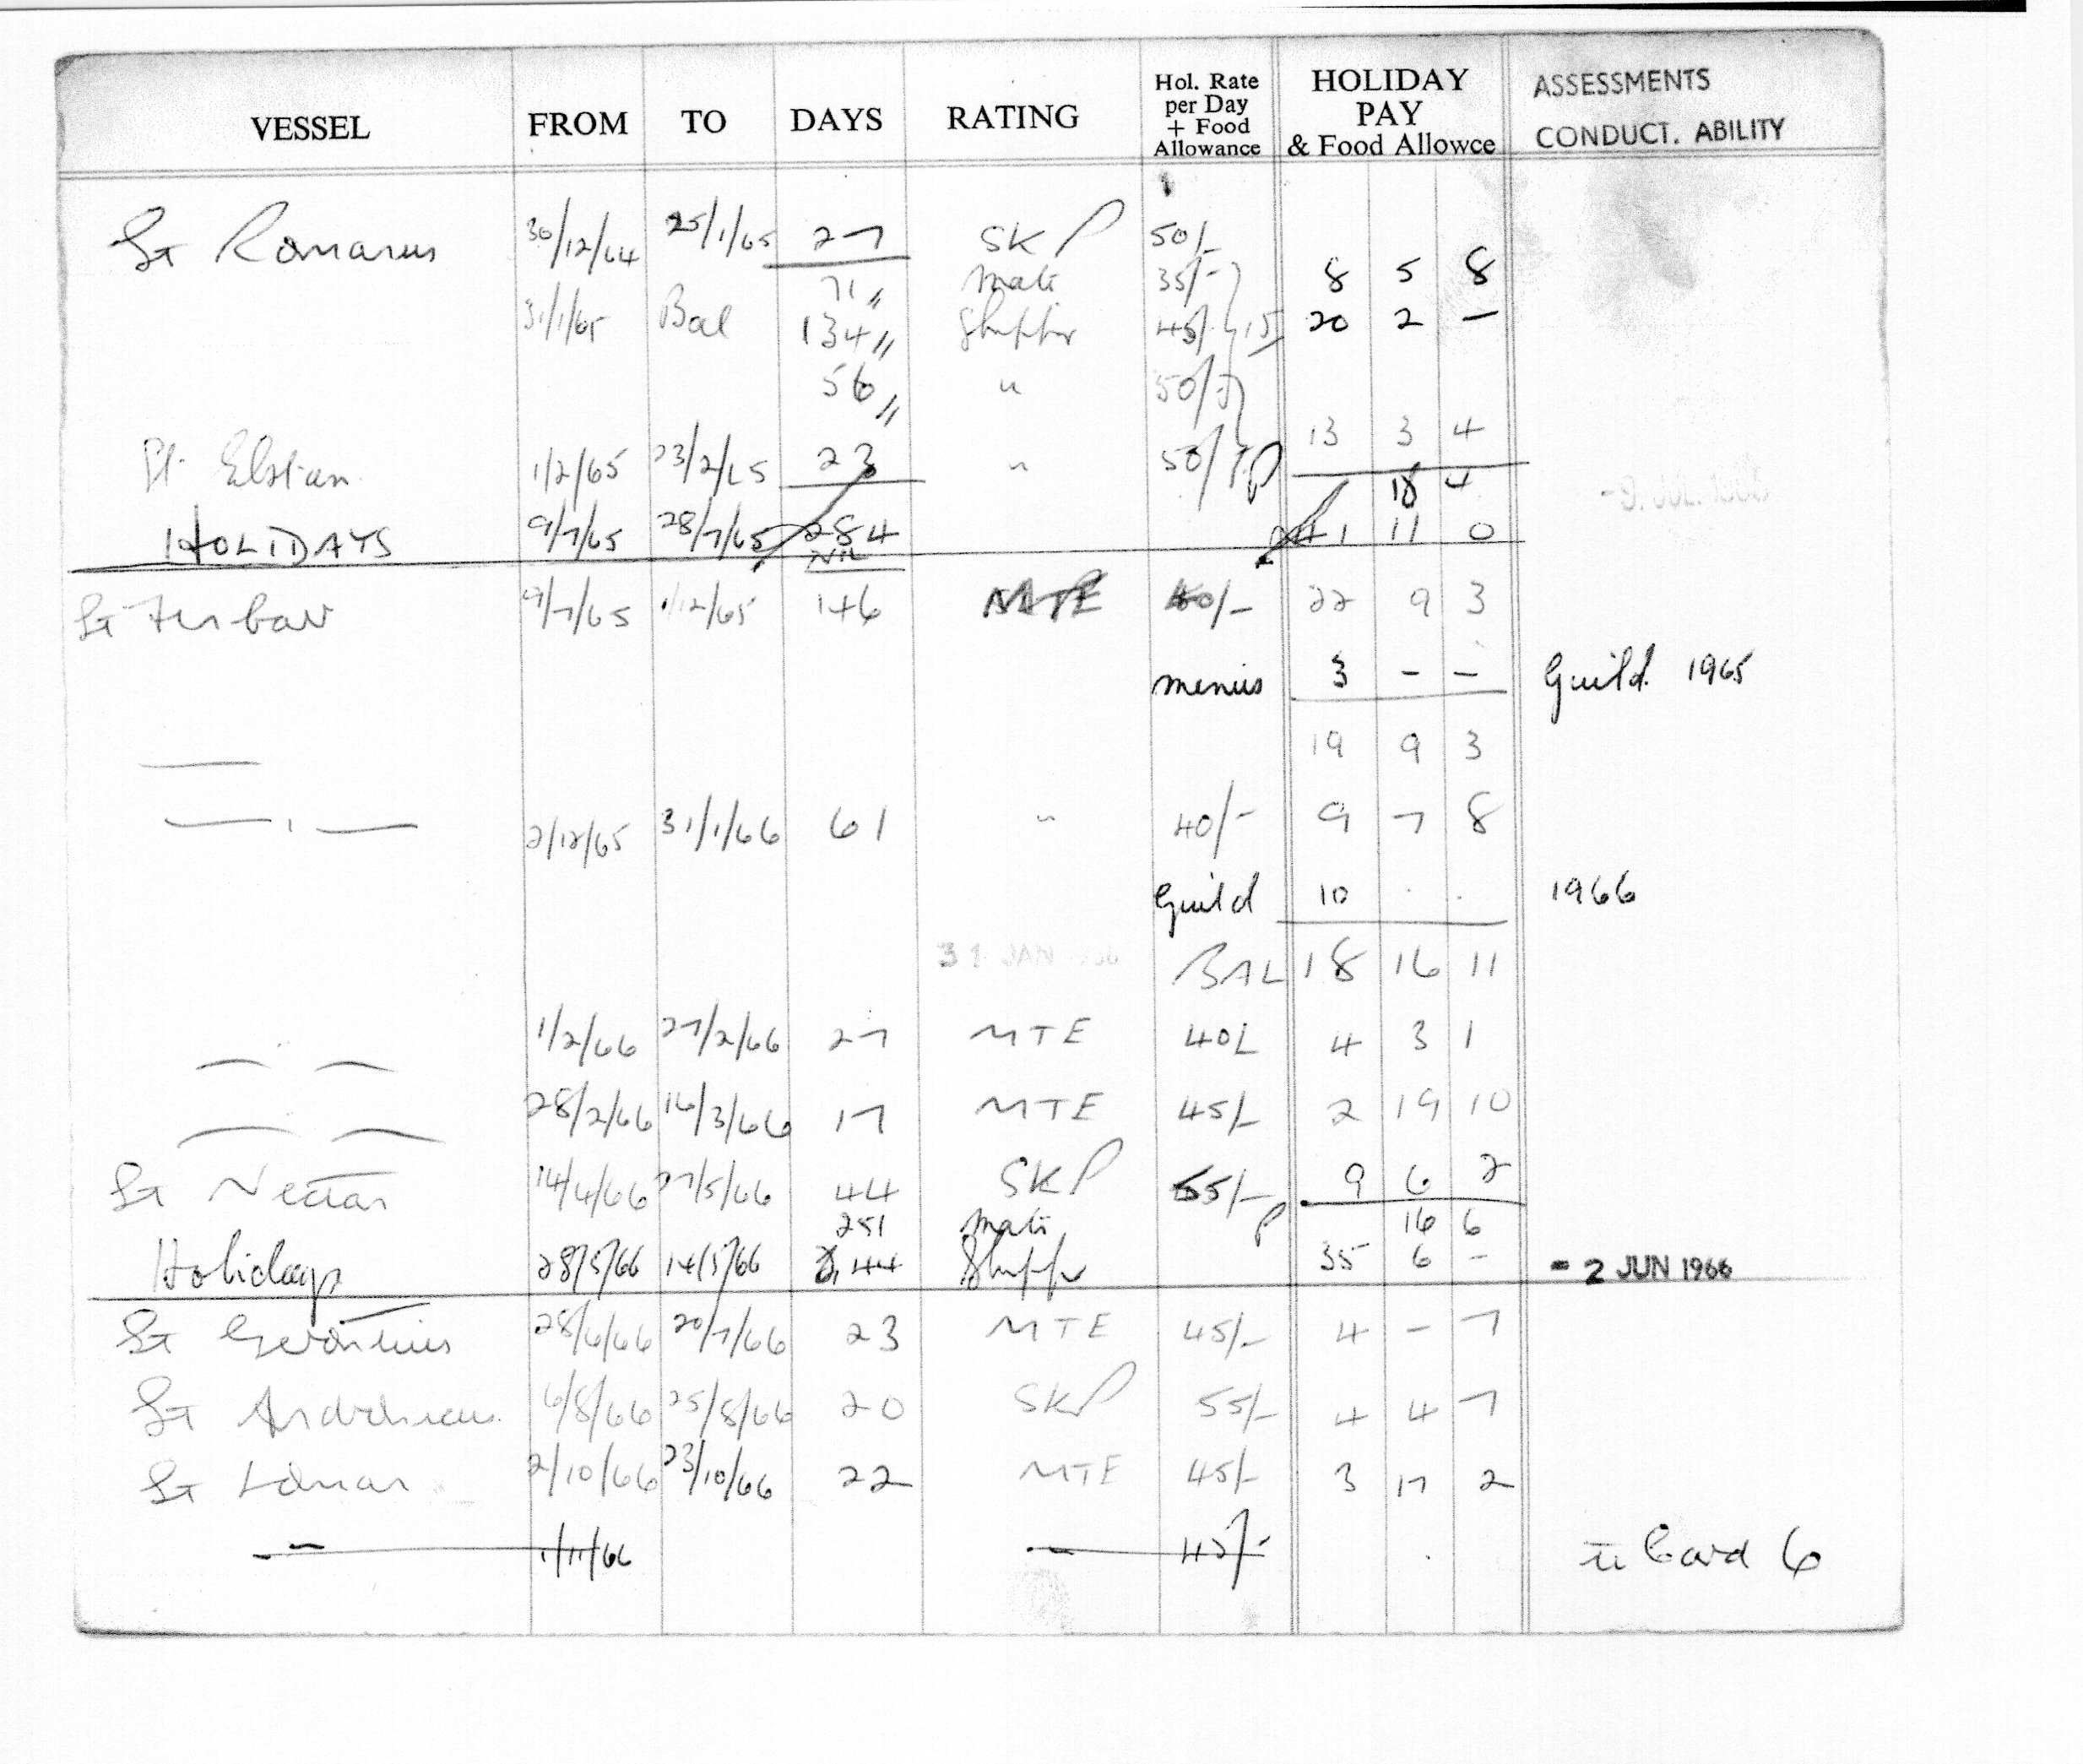 VESSEL FROM TO DAYS RATING Hol. Rate per Day + Food Allowance HOLIDAY PAY & Food Allowce ASSESSMENTS CONDUCT. ABILITY
St Romanus 30/12/64 25/1/65 27 SKP 50/-
71 " Mate 35/- 8 5 8
31/1/65 Bal 134 " Skipper 45/- 15 20 2 —
56 " " 50/-
13 3 4
St. Elstan 1/2/65 23/2/65 23 " 50/-
18 4
HOLIDAYS 9/7/65 28/7/65 284 41 11 0
NIL
St 9/7/65 1/12/65 146 MTE 40/- 22 9 3
menus 3 - - Guild 1965
19 9 3
— " — 2/12/65 31/1/66 61 " 40/- 9 7 8
Guild 10 . . 1966
31 JAN BAL 18 16 11
— — 1/2/66 27/2/66 27 MTE 40/- 4 3 1
— — 28/2/66 16/3/66 17 MTE 45/- 2 19 10
St Nectan 14/4/66 27/5/66 44 SKP 55/- 9 6 2
251 Mate 16 6
Holidays 28/5/66 14/5/66 44 Skipper 35 6 - - 2 JUN 1966
St Gerontius 28/6/66 20/7/66 23 MTE 45/- 4 - 7
St Andronicus 6/8/66 25/8/66 20 SKP 55/- 4 4 7
St Loman 2/10/66 23/10/66 22 MTE 45/- 3 17 2
— " — 1/11/66 — " — 45/- Card 6